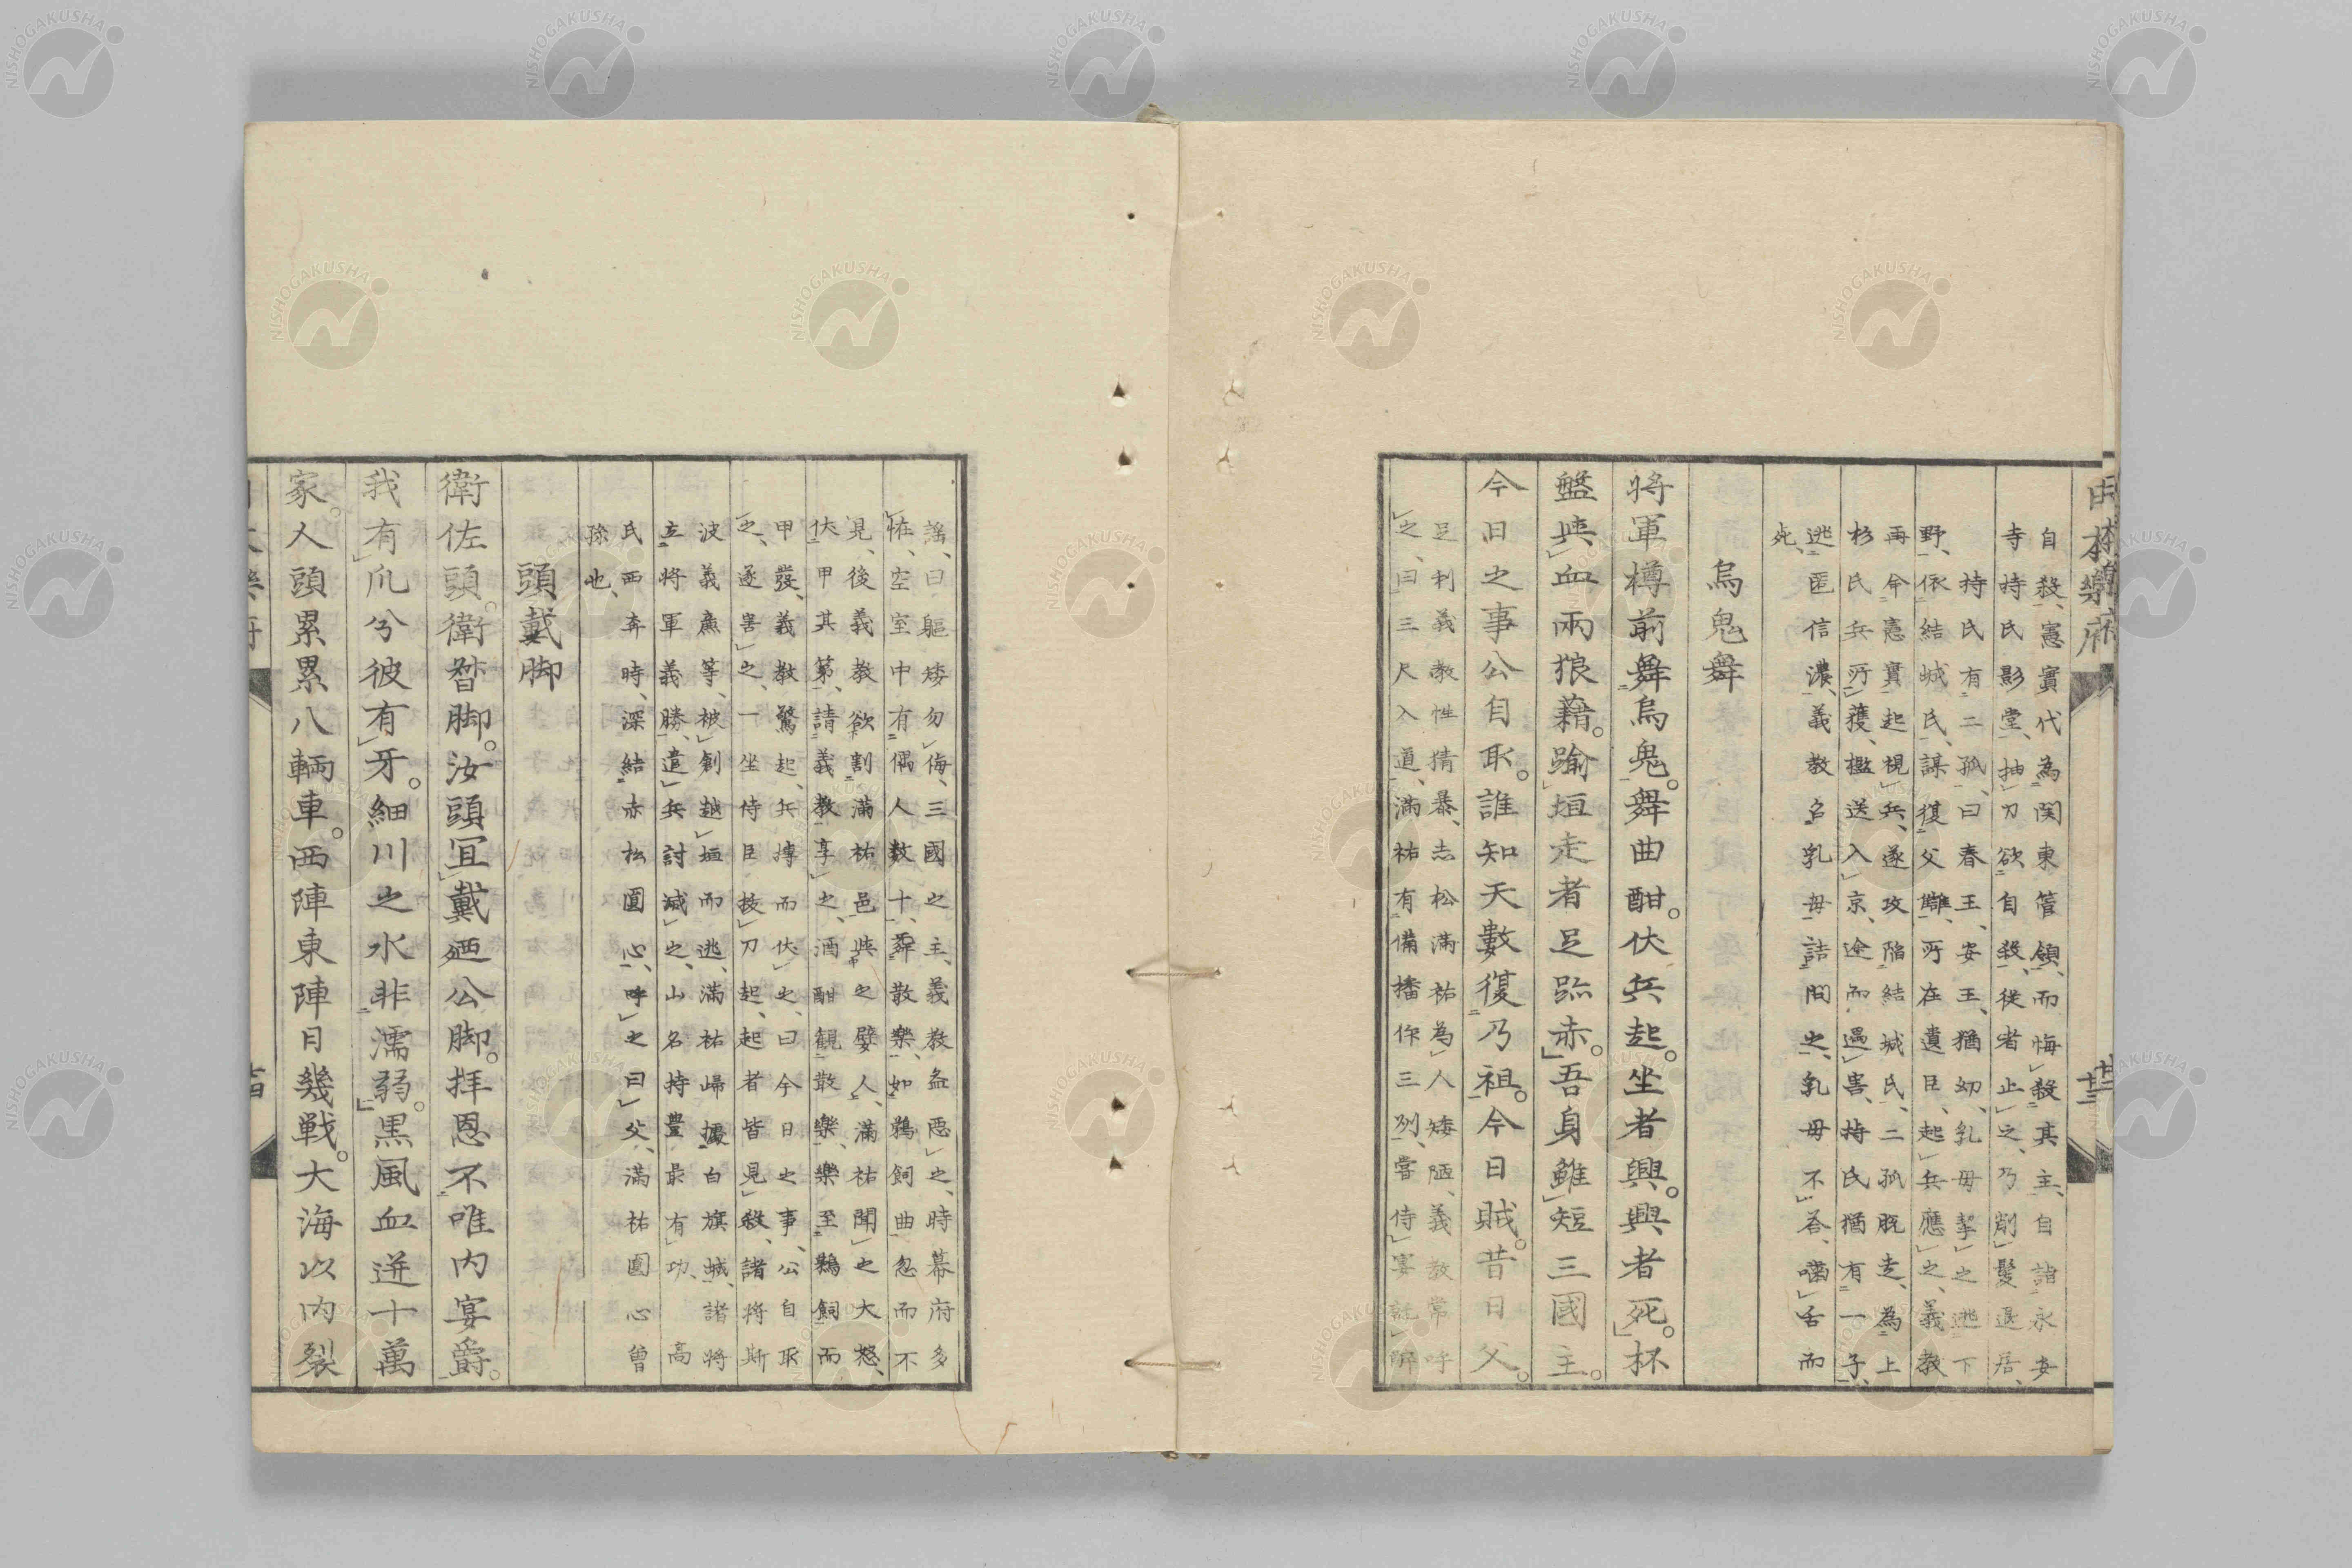 日本樂府
廿三
自殺、憲實代為関東管領、而悔殺其主、自詣永安
寺持氏影堂、抽刀欲自殺、從者止之、乃削髮退居、
持氏有二孤、曰春王、安王、猶幼、乳母挈之逃下
野、依結城氏、謀復父讎、所在遺臣、起兵應之、義教
再令憲實起視兵、遂攻陷結城氏、二孤脱走、為上
杉氏兵所獲、檻送入京、途而遇害、持氏猶有一子、
逃匿信濃、義教召乳母詰問之、乳母不荅、嚙舌而
死、
烏鬼舞
将軍樽前舞烏鬼。舞曲酣。伏兵起。坐者興。興者死。杯
盤與血兩狼藉。踰垣走者足跡赤。吾身雖短三國主。
今日之事公自取。誰知天數復乃祖。今日賊。昔日父。
足利義教性猜暴、志松滿祐為人矮陋、義教常呼
之、曰三尺入道、滿祐有備播作三州、嘗侍宴託醉
謡曰軀矮勿侮、三國之主、義教益惡之、時幕府多
恠、空室中有偶人数十、舞散樂、如鵜飼曲忽而不
見、後義教欲割滿祐邑與之嬖人、滿祐聞之大怒、
伏甲其第、請義教享之、酒酣観散樂、樂至鵜飼而
甲發、義教驚起、兵摶而伏之、曰今日之事、公自取
之、遂害之、一坐侍臣拔刀起、起者皆見殺、諸将斯
波義廉等、被創越垣而逃、滿祐歸據白旗城、諸将
立将軍義勝、遣兵討滅之、山名持豊最有功、高
氏西奔時、深結赤松圓心、呼之曰父、滿祐圓心曾
孫也、
頭戴脚
衛佐頭。衛督脚。汝頭冝戴廼公脚。拝恩不唯内宴爵。
我有爪兮彼有牙。細川之水非濡弱。黒風血迸十萬
家。人頭累累八輌車。西陣東陣日幾戰。大海以内裂